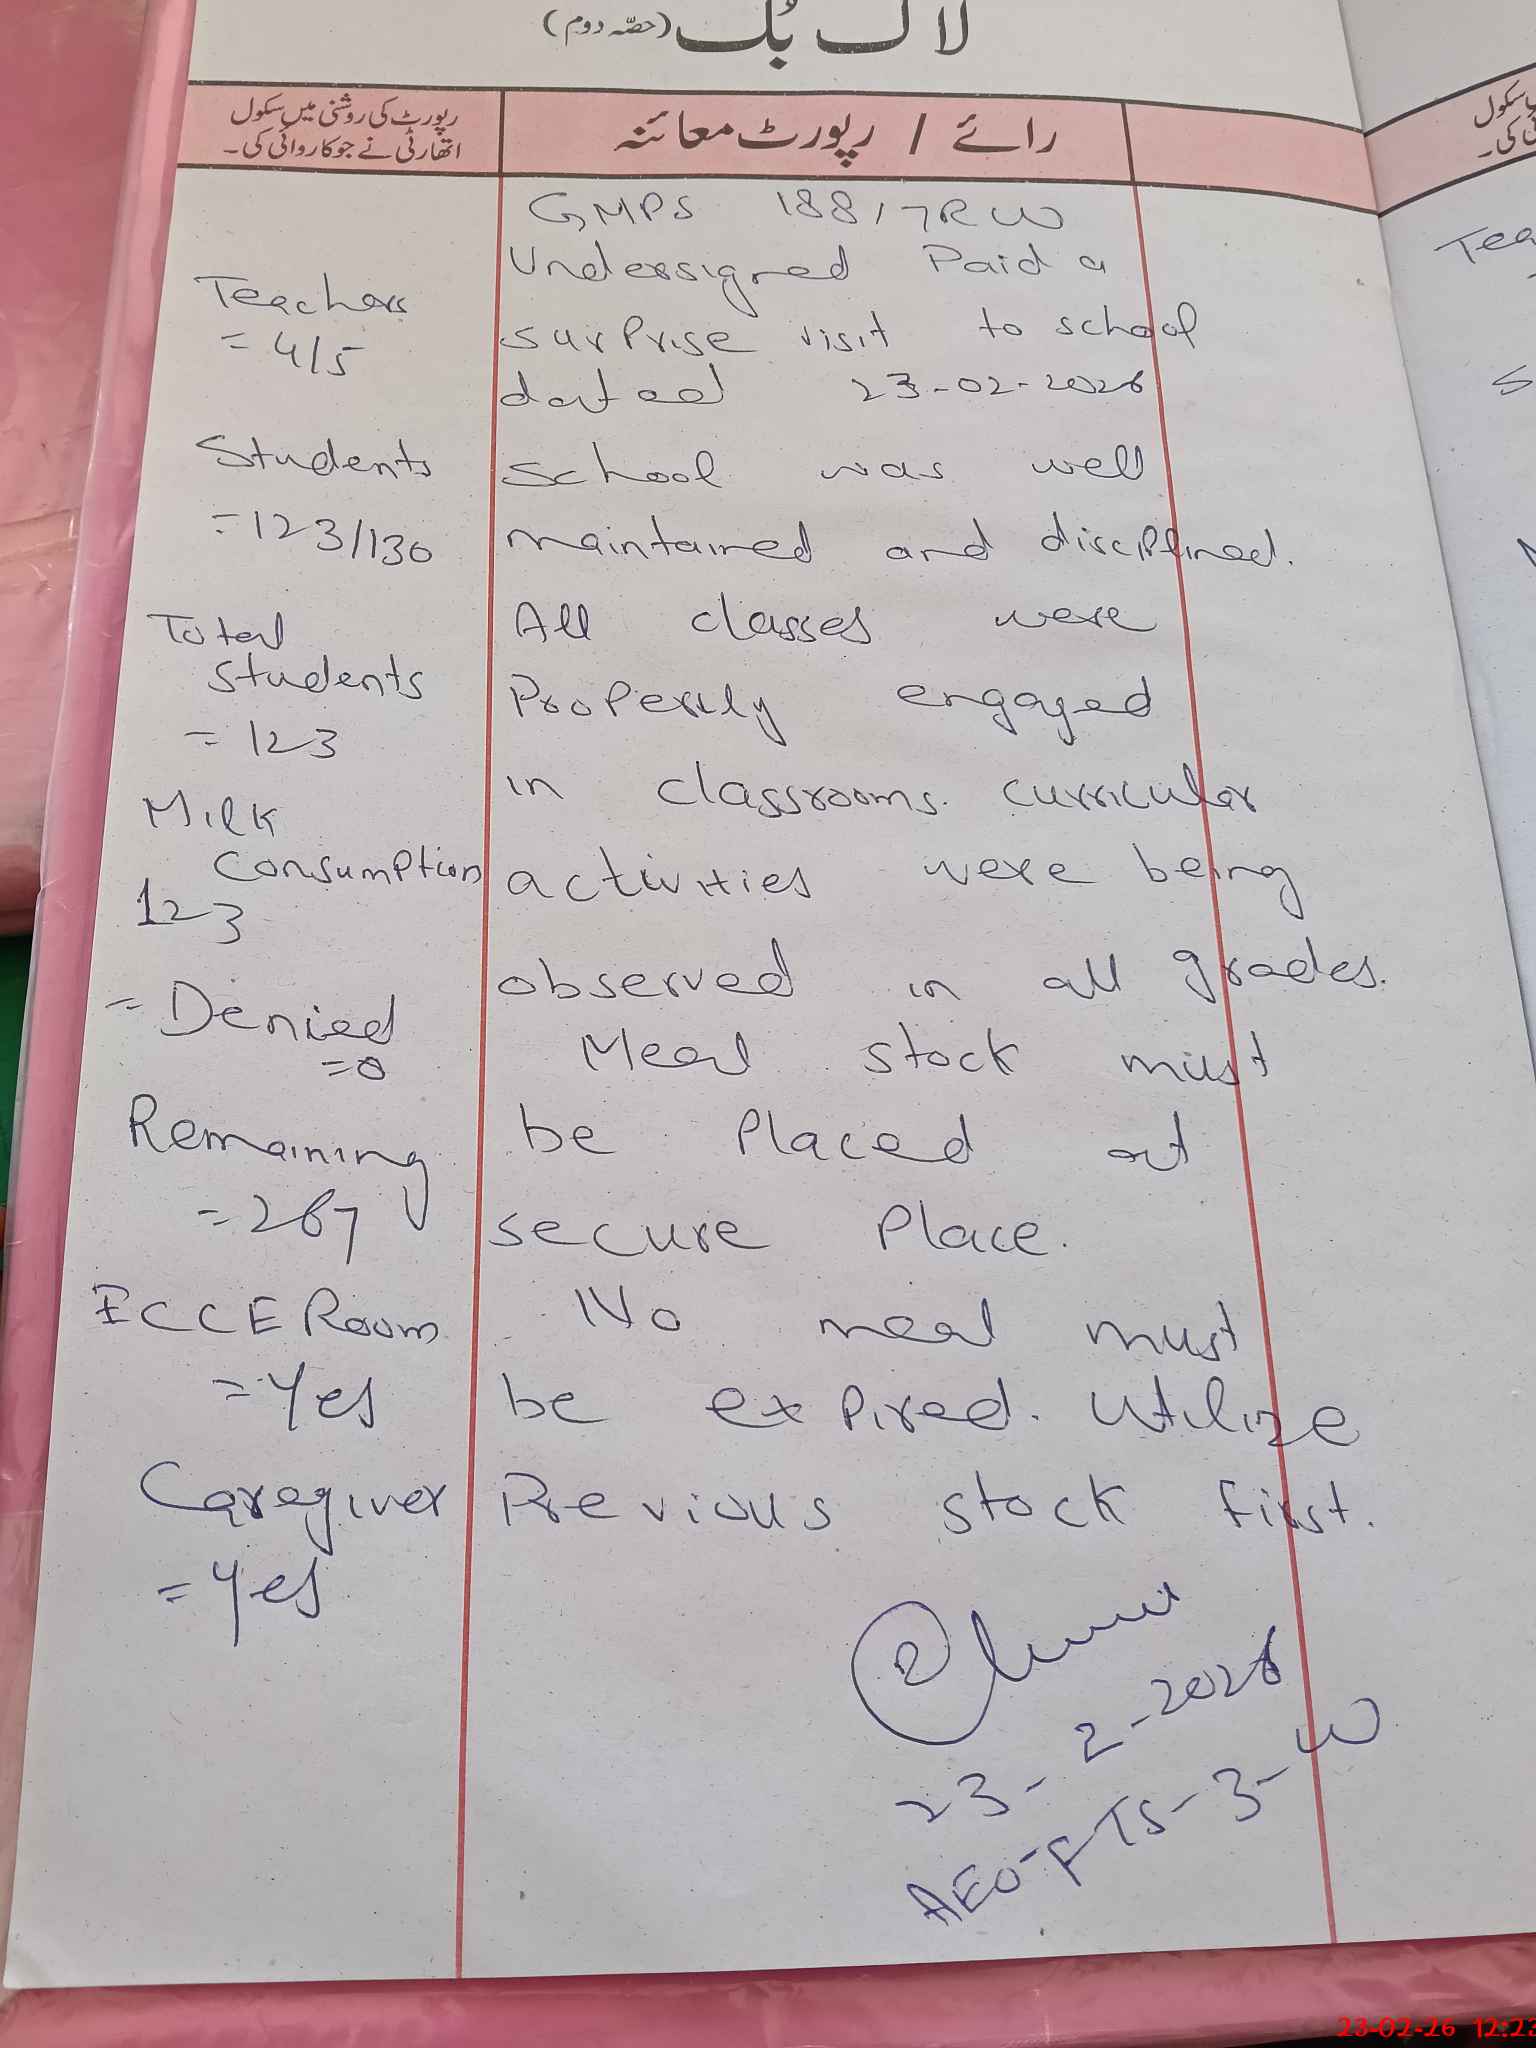 لاگ بُک (حصّہ دوم)
رائے / رپورٹ معائنہ
رپورٹ کی روشنی میں سکول
اتھارٹی نے جو کاروائی کی۔
GMPS 188/7R W
Undersigned Paid a
surprise visit to school
dated 23-02-2026
school was well
maintained and disciplined.
All classes were
Properly engaged
in classrooms. curricular
activities were being
observed in all grades.
Meal stock must
be Placed at
secure Place.
No meal must
be expired. Utilize
Previous stock first.
23-2-2026
AEO-FTS-3-W
Teachers
=4/5
Students
=123/130
Total
Students
=123
Milk
Consumption
123
=Denied
=0
Remaining
=267
ECCE Room
=Yes
Caregiver
=Yes
23-02-26 12:23